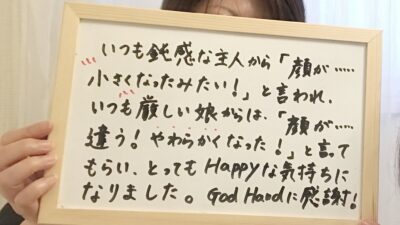 いつも鈍感な主人から「顔が……
小さくなったみたい!」と言われ、
いつも厳しい娘からは、「顔が…
違う!やわらかくなった!」と言って
もらい、とってもHappyな気持ちに
なりました。God Handに感謝!